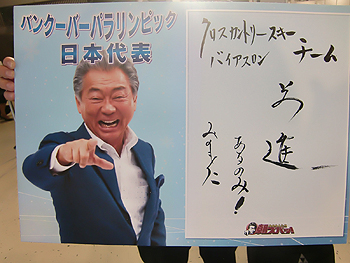 バンクーバーパラリンピック
日本代表
クロスカントリースキー
バイアスロン
チーム
前進
あるのみ!
みのもんた